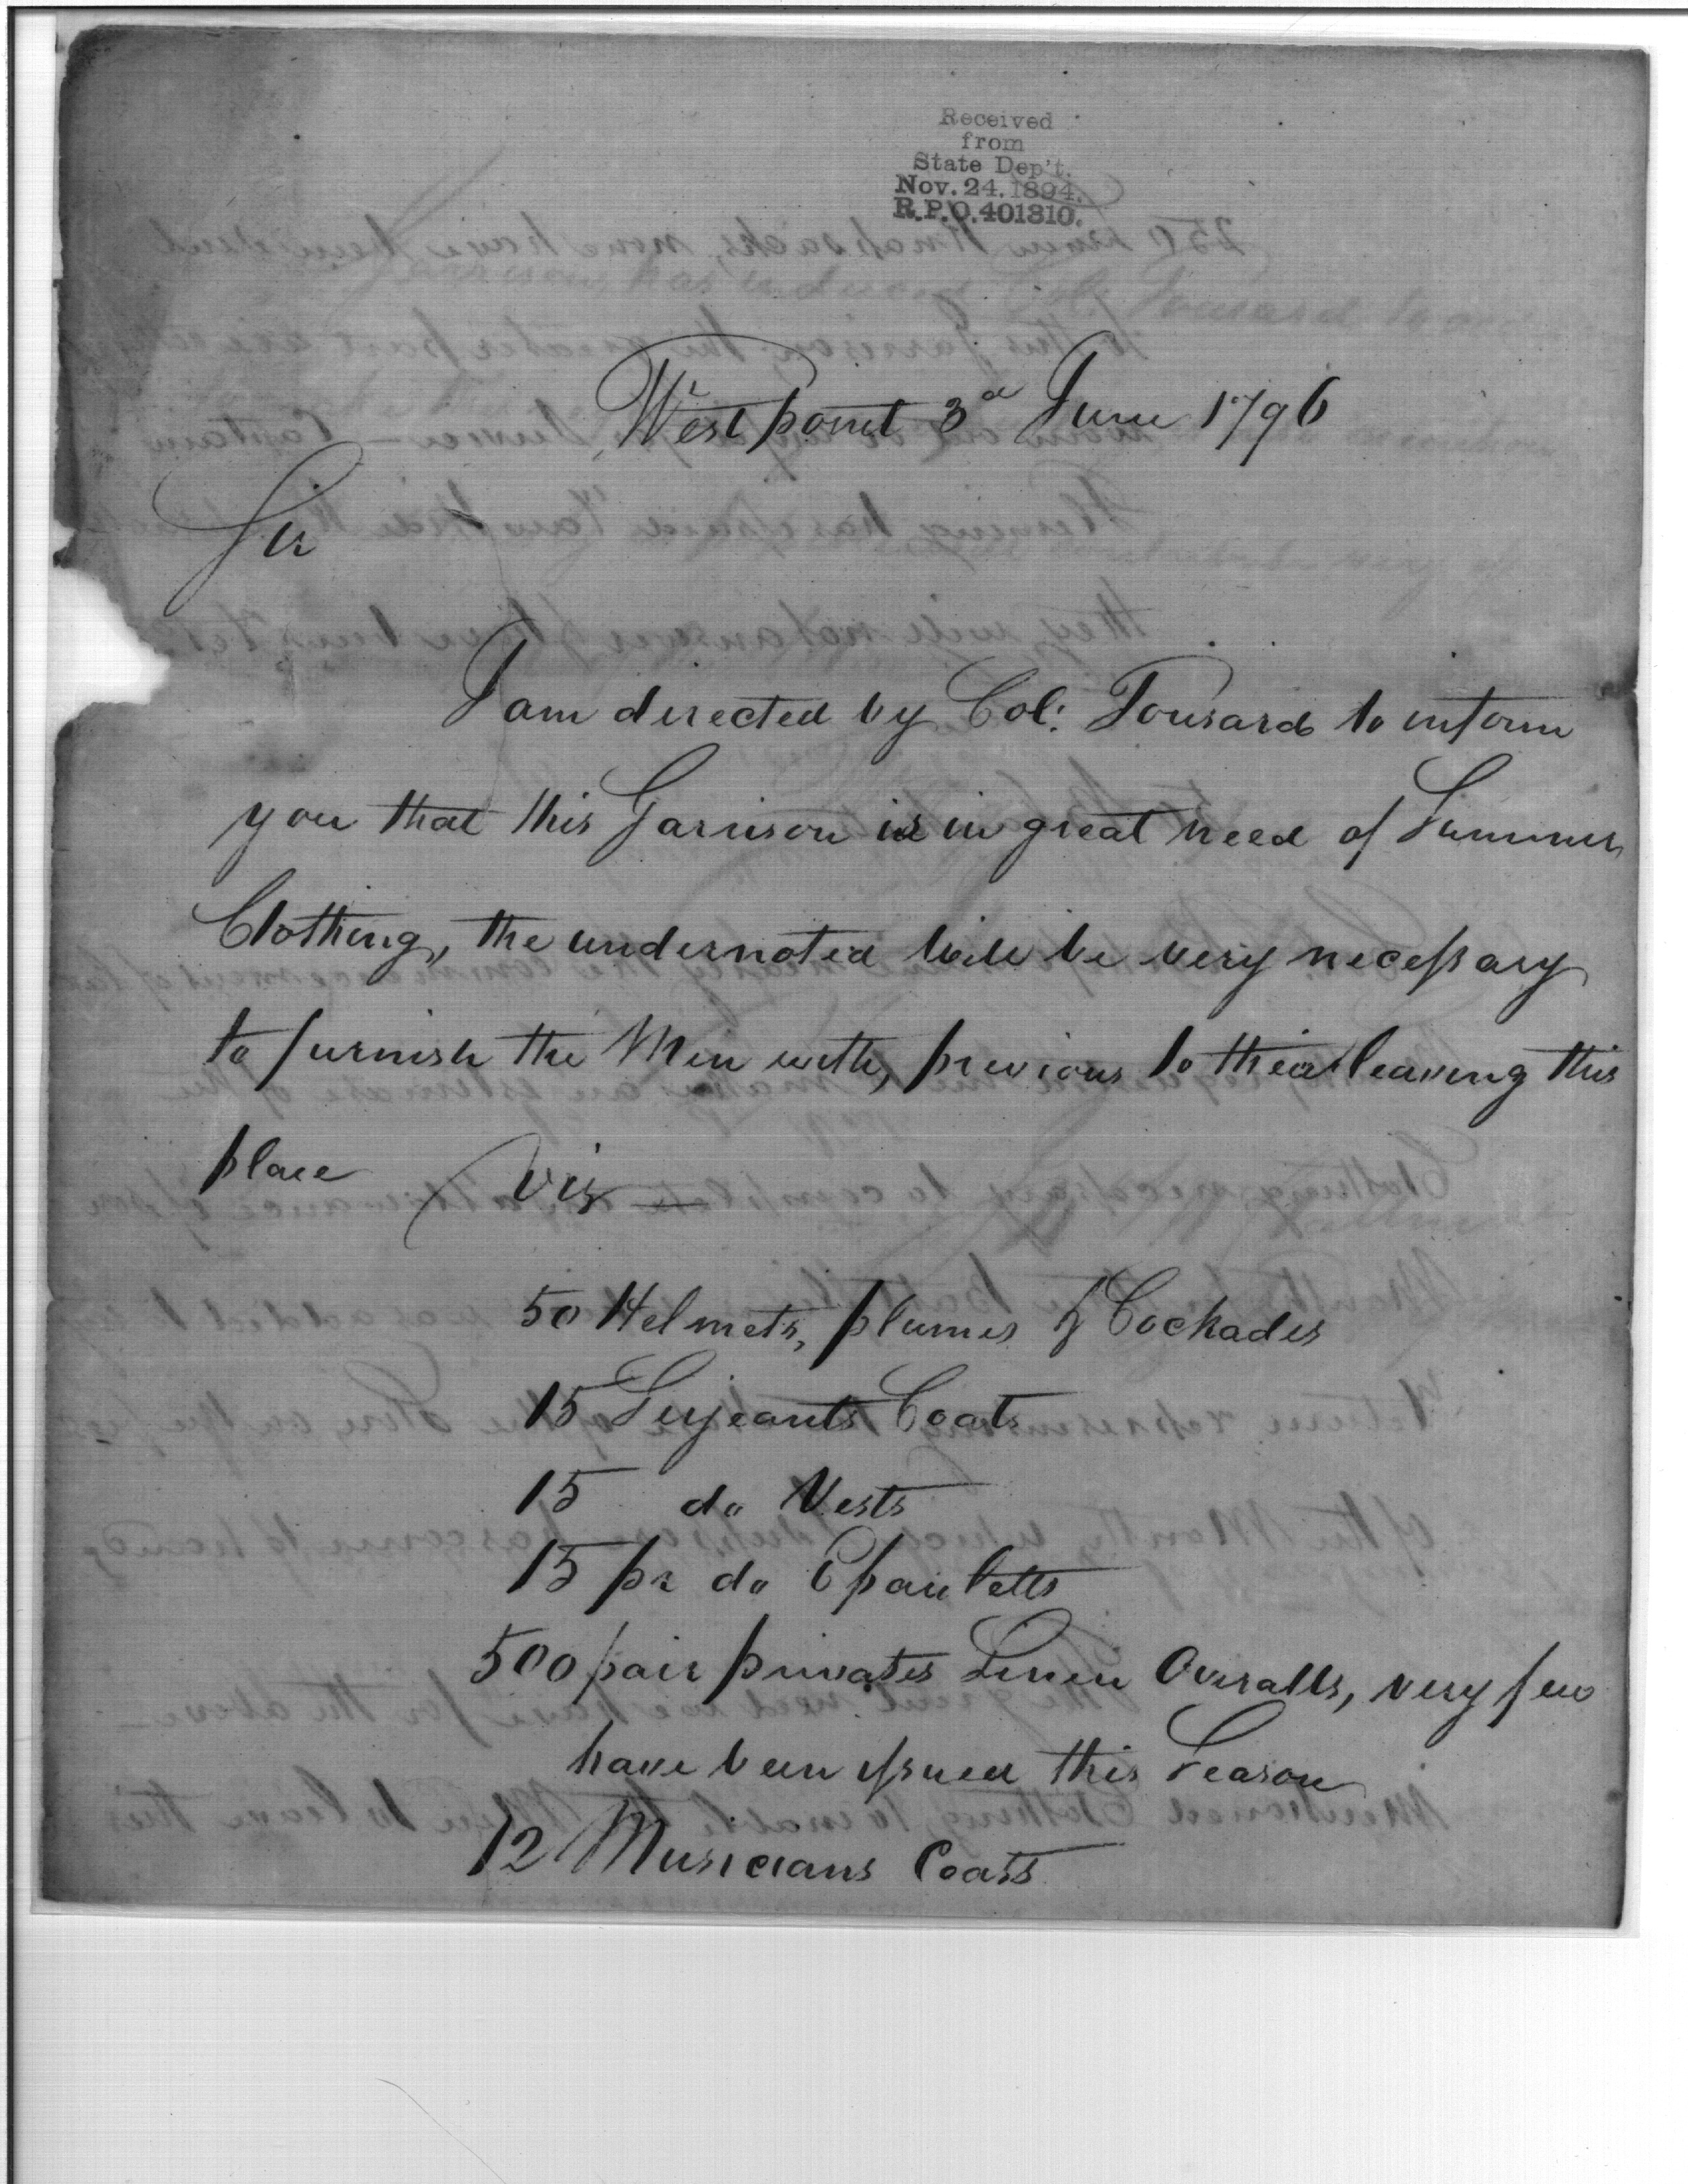 Received
from
State Dep't.
Nov. 24. 1894.
R.P.O. 401310.
West point 3d June 1796
Sir
I am directed by Col: Tousard to inform
you that this Garrison is in great need of Summer
Clothing, the undernoted will be very necessary
to furnish the Men with, previous to their leaving this
place Viz
50 Helmets, plumes & Cockades
15 Serjeants Coats
15 do Vests
15 pr do Epauletts
500 pair privates Linen Overalls, very few
have been issued this Season
12 Musicians Coats